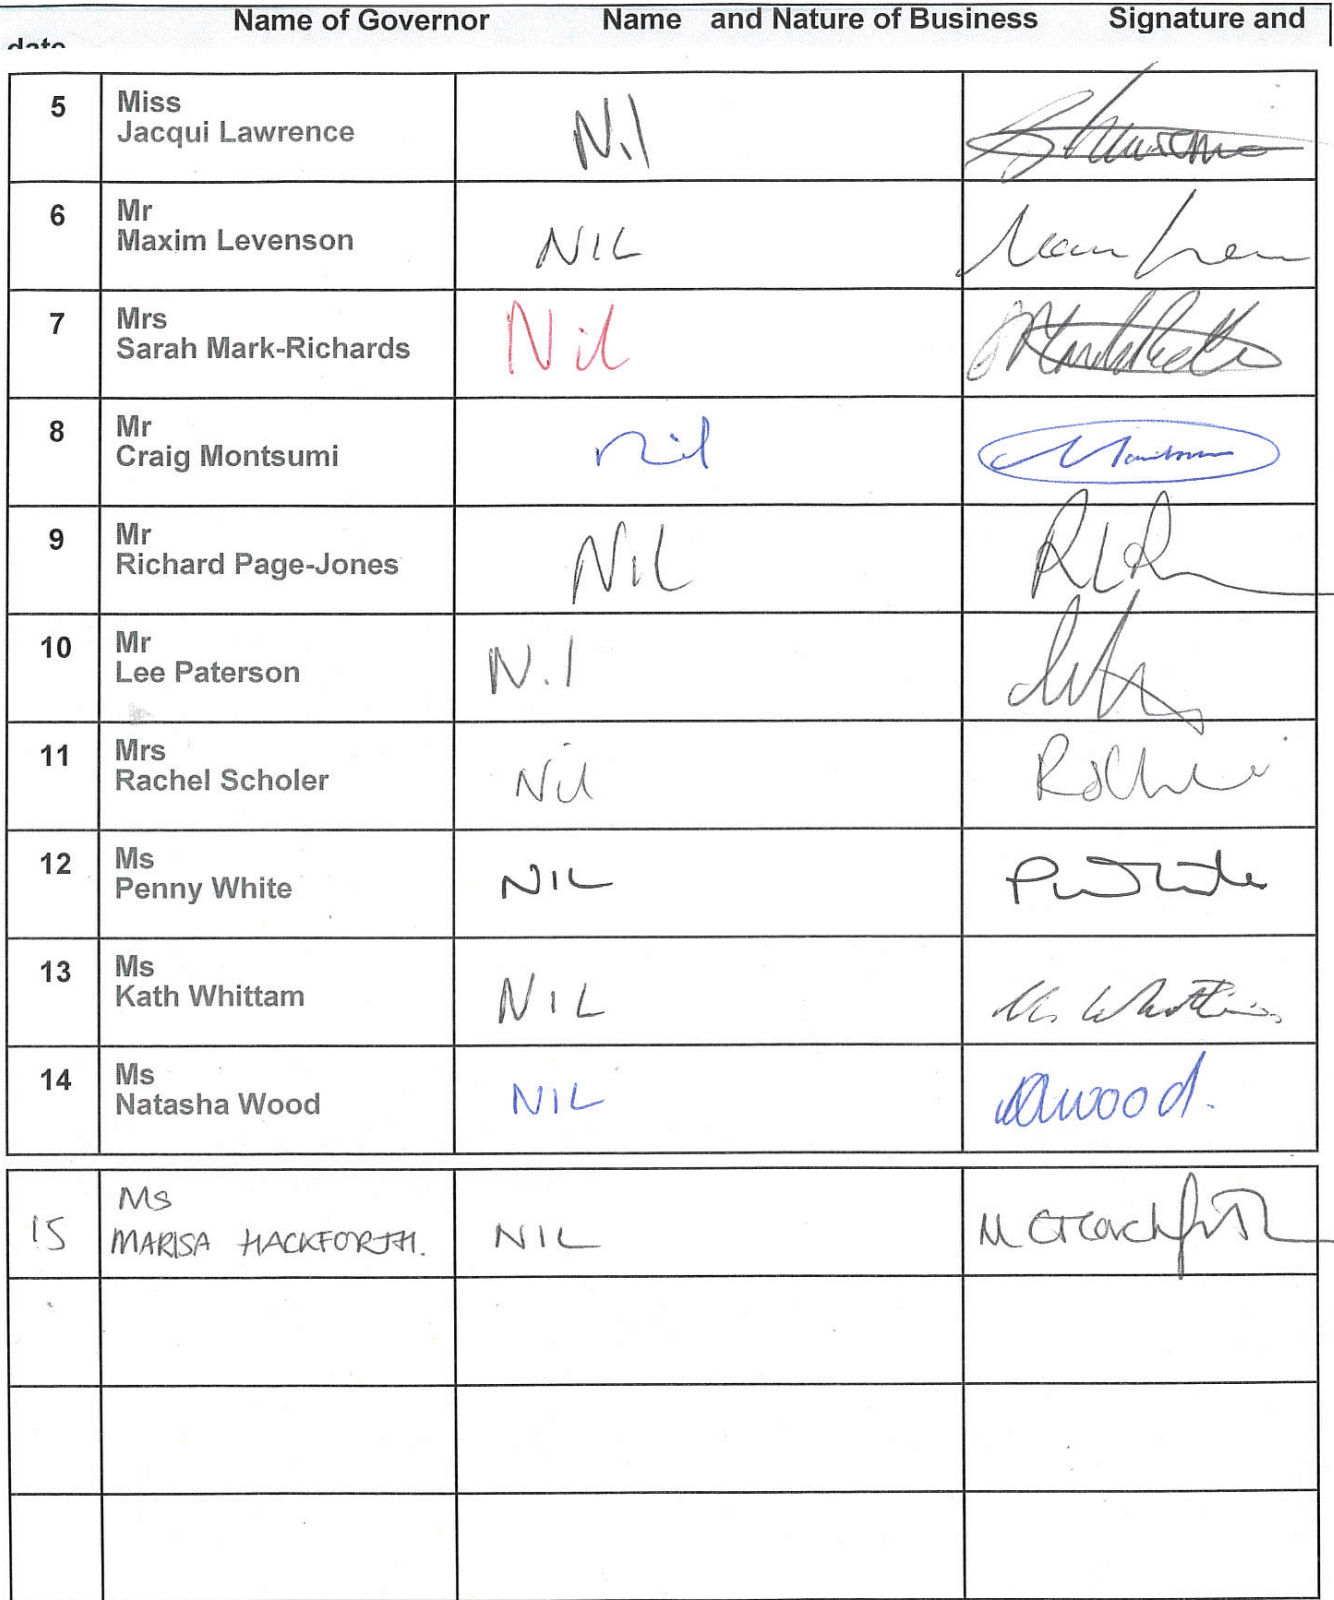 Name of Governor Name and Nature of Business Signature and
date
5 Miss
Jacqui Lawrence Nil
6 Mr
Maxim Levenson NIL
7 Mrs
Sarah Mark-Richards Nil
8 Mr
Craig Montsumi nil
9 Mr
Richard Page-Jones NIL
10 Mr
Lee Paterson Nil
11 Mrs
Rachel Scholer Nil
12 Ms
Penny White NIL P White
13 Ms
Kath Whittam NIL K. Whittam
14 Ms
Natasha Wood NIL
15 Ms
MARISA HACKFORTH. NIL